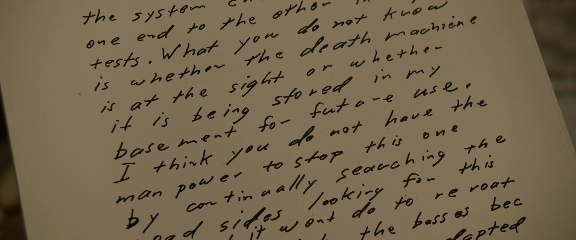 the system
one end to the other
tests. What you do not know
is whether the death machine
is at the sight or whether
it is being stored in my
basement for future use.
I think you do not have the
man power to stop this one
by continually searching the
road sides looking for this
it wont do to re roat
the basses bec
adapted